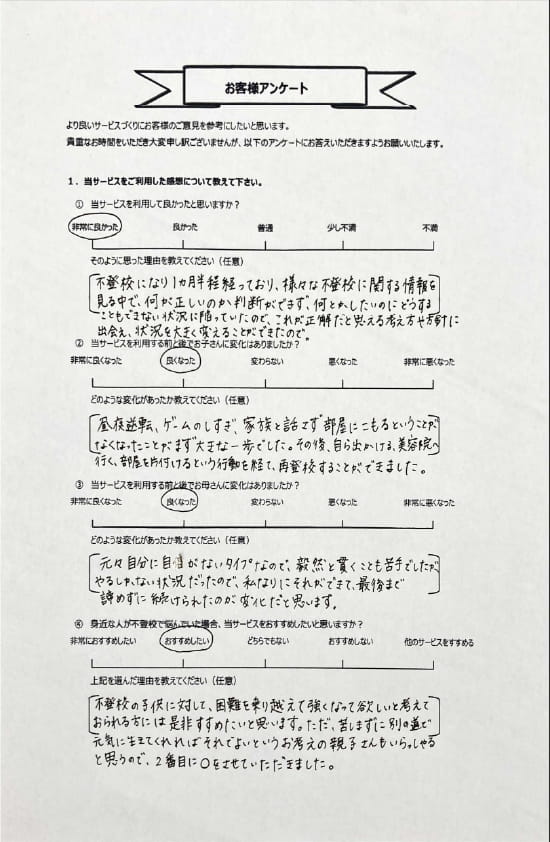 お客様アンケート
より良いサービスづくりにお客様のご意見を参考にしたいと思います。
貴重なお時間をいただき大変申し訳ございませんが、以下のアンケートにお答えいただきますようお願いいたします。
1．当サービスをご利用した感想について教えて下さい。
① 当サービスを利用して良かったと思いますか？
非常に良かった 良かった 普通 少し不満 不満
そのように思った理由を教えてください（任意）
不登校になり1カ月半程経っており、様々な不登校に関する情報を
見る中で、何が正しいのか判断ができず、何とかしたいのにどうする
こともできない状況に陥っていたので、これが正解だと思える考え方や方針に
出会え、状況を大きく変えることができたので。
② 当サービスを利用する前と後でお子さんに変化はありましたか？
非常に良くなった 良くなった 変わらない 悪くなった 非常に悪くなった
どのような変化があったか教えてください（任意）
昼夜逆転、ゲームのしすぎ、家族と話さず部屋にこもるということが
なくなったことがまず大きな一歩でした。その後、自ら出かける、美容院へ
行く、部屋を片付けるという行動を経て、再登校することができました。
③ 当サービスを利用する前と後でお母さんに変化はありましたか？
非常に良くなった 良くなった 変わらない 悪くなった 非常に悪くなった
どのような変化があったか教えてください（任意）
元々自分に自信がないタイプなので、毅然と貫くことも苦手でしたが
やるしかない状況だったので、私なりにそれができて、最後まで
諦めずに続けられたのが変化だと思います。
④ 身近な人が不登校で悩んでいた場合、当サービスをおすすめしたいと思いますか？
非常におすすめしたい おすすめしたい どちらでもない おすすめしない 他のサービスをすすめる
上記を選んだ理由を教えてください（任意）
不登校の子供に対して、困難を乗り越えて強くなって欲しいと考えて
おられる方には是非すすめたいと思います。ただ、苦しまずに別の道で
元気に生きてくれればそれでよいというお考えの親子さんもいらっしゃる
と思うので、2番目に○をさせていただきました。